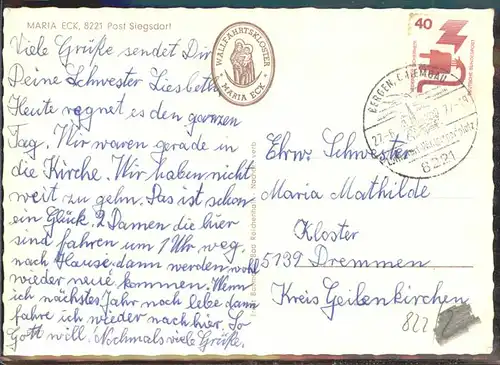 MARIA ECK, 8221 Post Siegsdorf
Viele Grüße sendet Dir
Deine Schwester Liesbeth
Heute regnet es den ganzen
Tag. Wir waren gerade in
die Kirche. Wir haben nicht
weit zu gehn. Das ist schon
ein Glück. 2 Damen die hier
sind fahren um 1 Uhr weg,
nach Hause dann werden wohl
wieder neue kommen. Wenn
ich nächstes Jahr noch lebe dann
fahre ich wieder nach hier. So
Gott will. Nochmals viele Grüße.
WALLFAHRTSKLOSTER
MARIA ECK
40
DEUTSCHE BUNDESPOST
BERGEN, CHIEMGAU
27.-9.
8221
Ehrw. Schwester
Maria Mathilde
Kloster
5139 Dremmen
Kreis Geilenkirchen
822 2